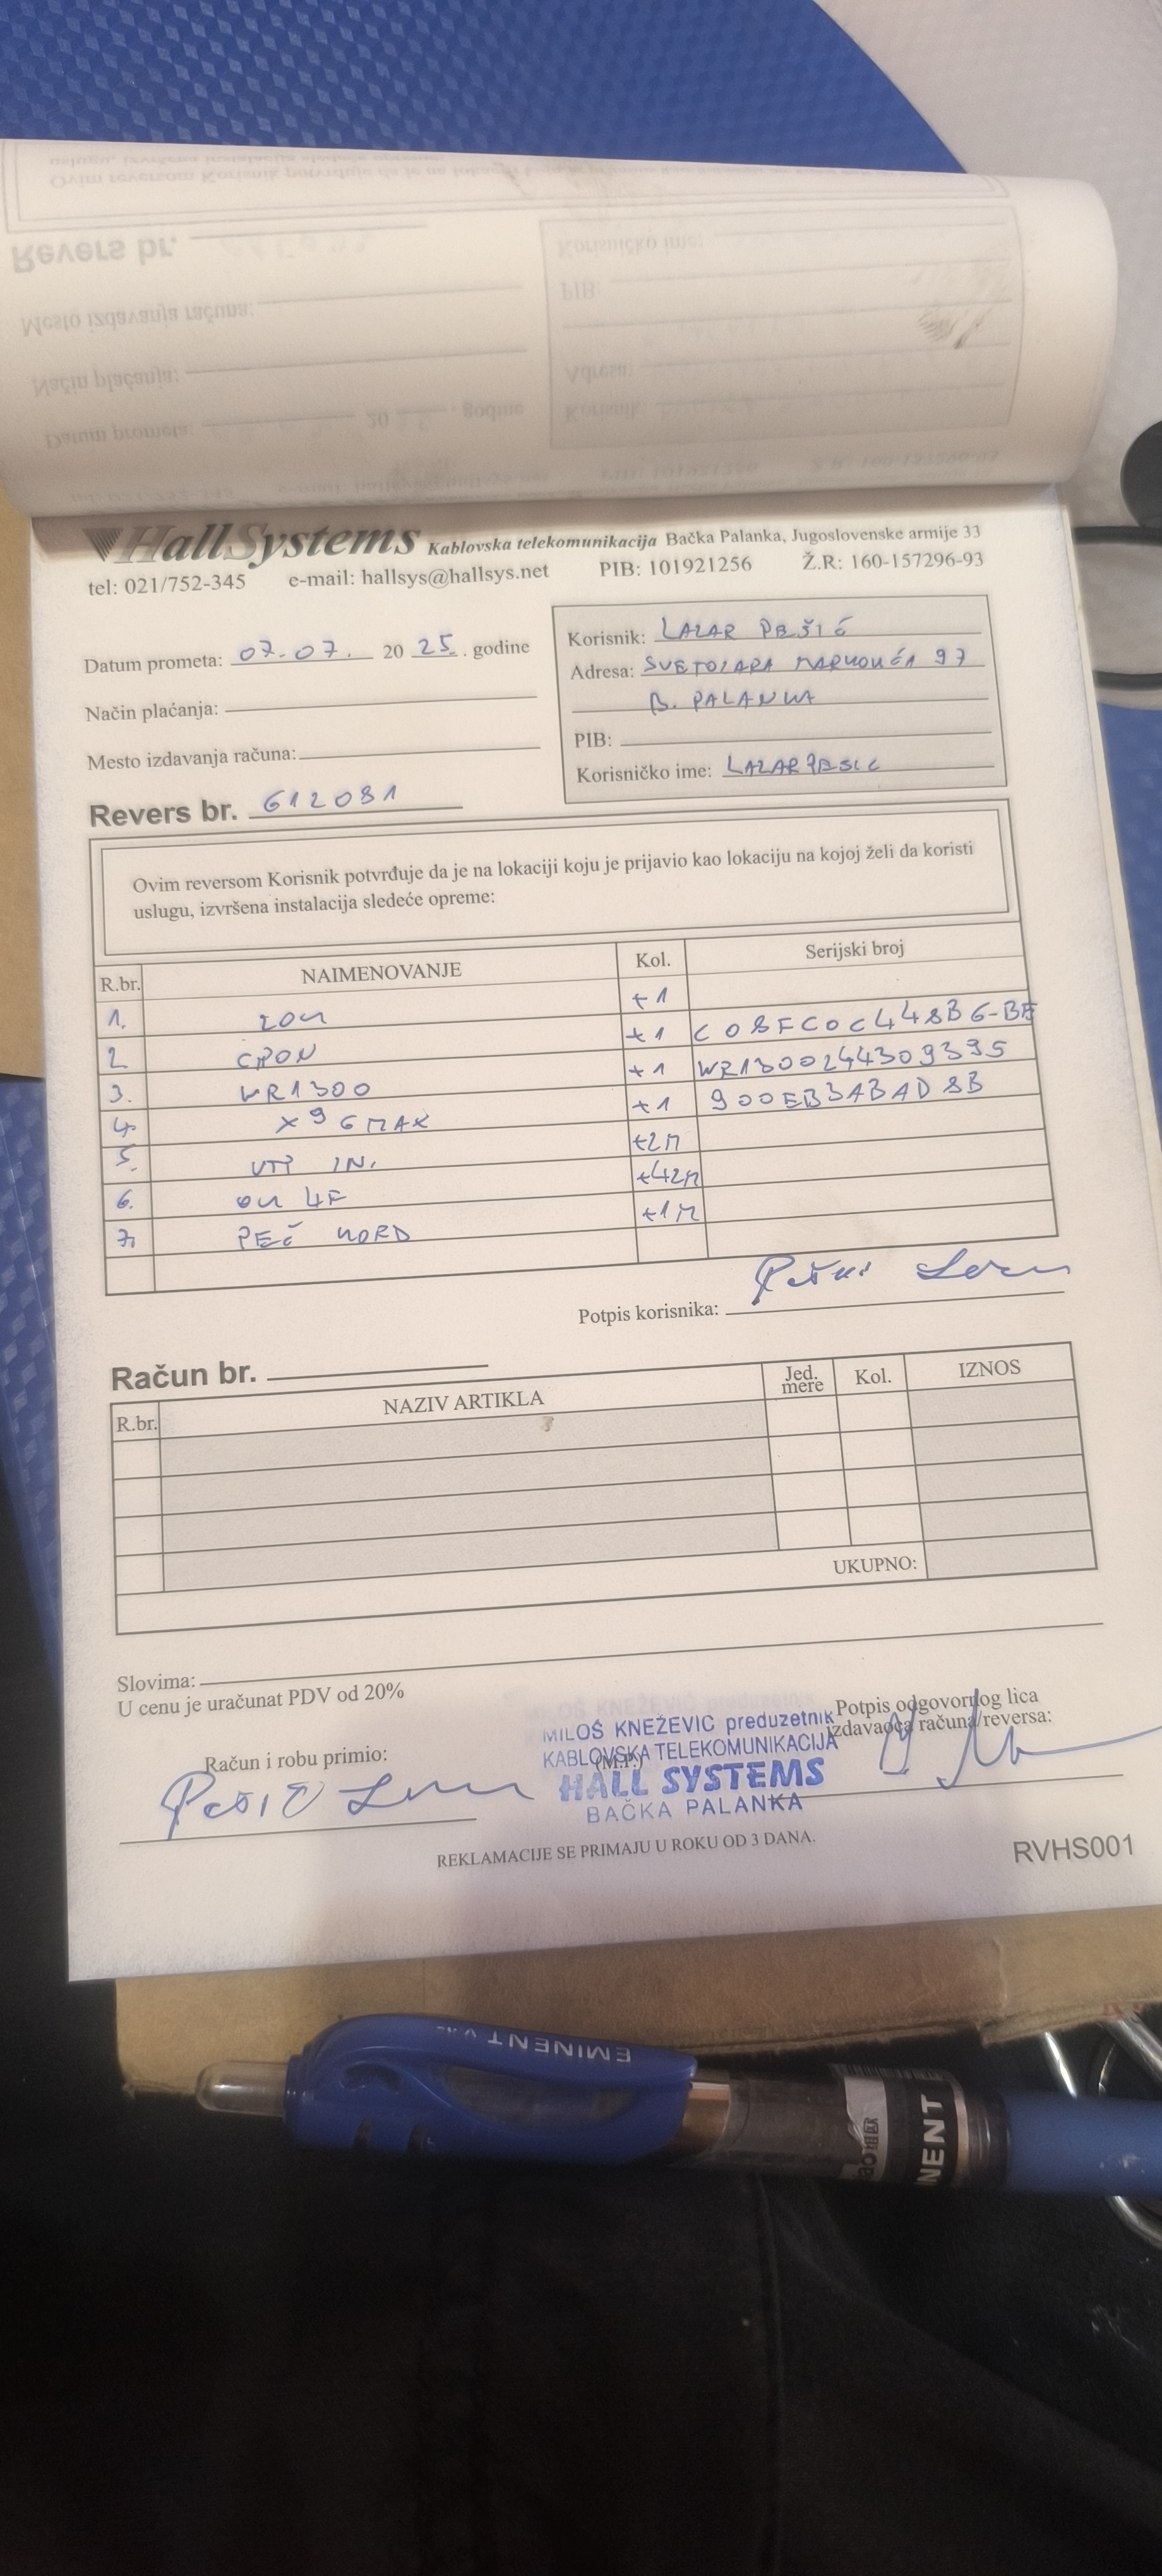 HallSystems Kablovska telekomunikacija Bačka Palanka, Jugoslovenske armije 33
tel: 021/752-345 e-mail: hallsys@hallsys.net PIB: 101921256 Ž.R: 160-157296-93
Datum prometa: 07.07. 20 25. godine
Način plaćanja:
Mesto izdavanja računa:
Revers br. 612081
Korisnik: LAZAR PEŠIĆ
Adresa: SVETOZARA MARKOVIĆA 97
B. PALANKA
PIB:
Korisničko ime: LAZARPESIC
Ovim reversom Korisnik potvrđuje da je na lokaciji koju je prijavio kao lokaciju na kojoj želi da koristi
uslugu, izvršena instalacija sledeće opreme:
R.br. NAIMENOVANJE Kol. Serijski broj
1. ZOK +1
2 GPON +1 C08FC0C448B6-BF
3. WR1300 +1 WR1300244309395
4. X9 6MAX +1 900EB3ABAD8B
5. UTP IN. +2M
6. OK 4F +42M
7. PEČ KORD +1M
Potpis korisnika: Pešić Lazar
Račun br.
R.br. NAZIV ARTIKLA Jed. mere Kol. IZNOS
UKUPNO:
Slovima:
U cenu je uračunat PDV od 20%
Račun i robu primio:
Pešić Lazar
(M.P.)
MILOŠ KNEŽEVIĆ preduzetnik
KABLOVSKA TELEKOMUNIKACIJA
HALL SYSTEMS
BAČKA PALANKA
Potpis odgovornog lica
izdavaoca računa/reversa:
REKLAMACIJE SE PRIMAJU U ROKU OD 3 DANA.
RVHS001
EMINENT
NENT